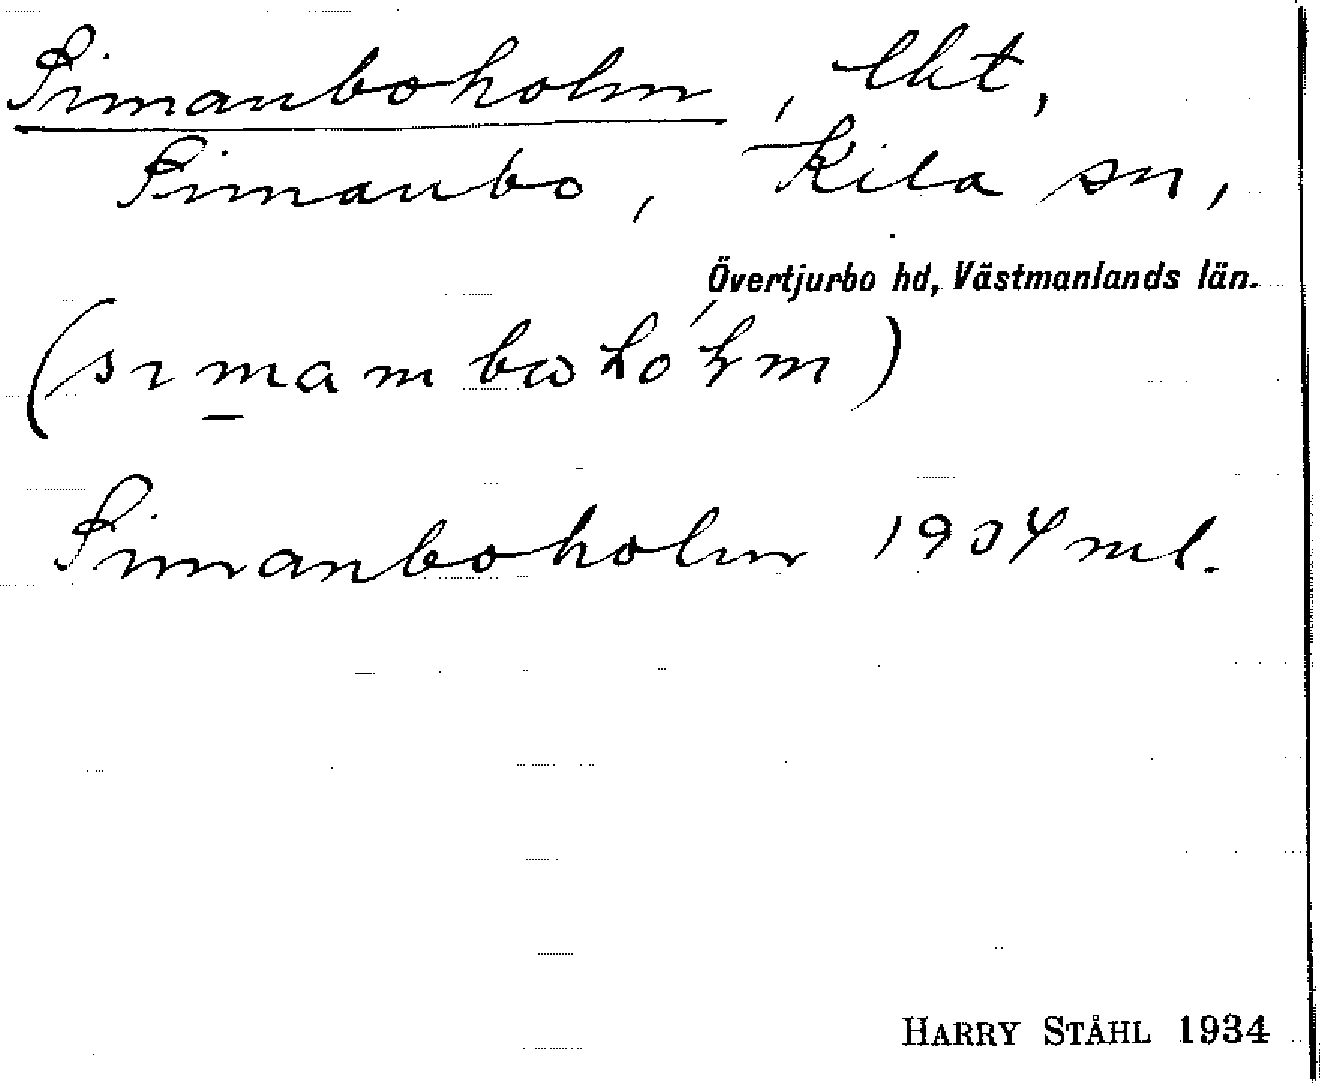 Simanboholm, lht,
Simanbo, Kila sn,
Övertjurbo hd, Västmanlands län.
Simanboholm 1934 ml.
HARRY STÅHL 1934